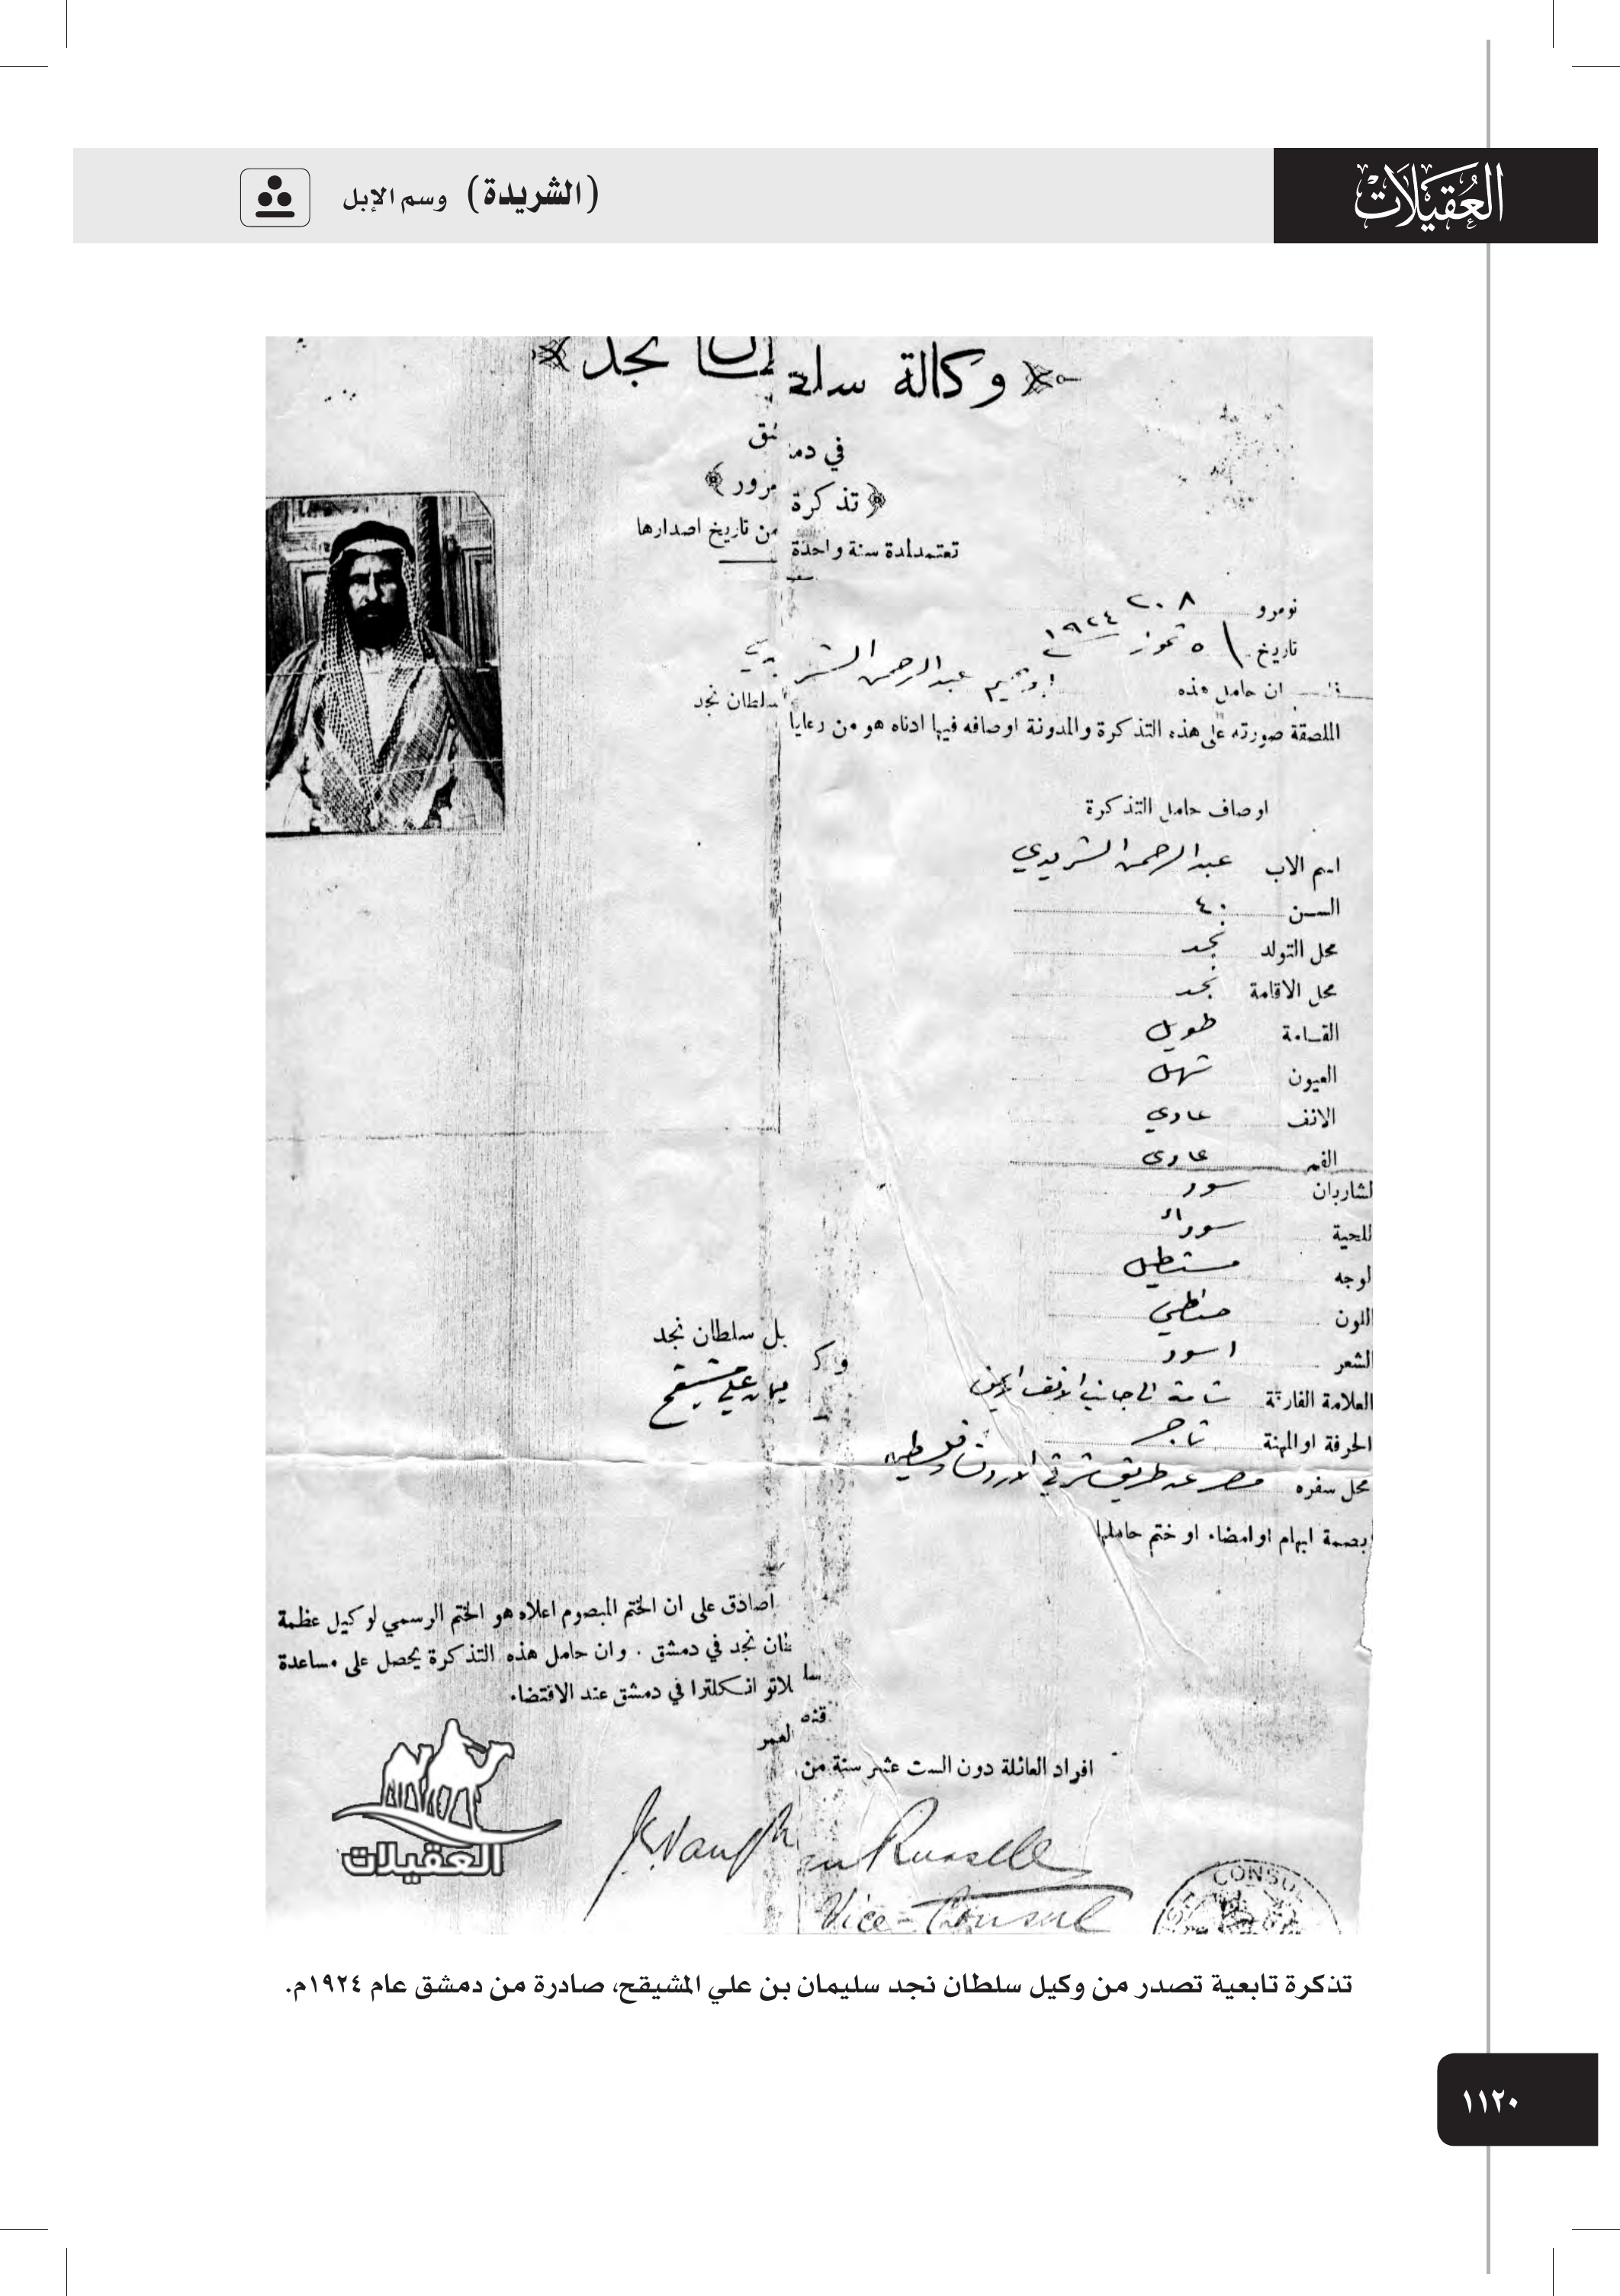 العقيلات
(الشريدة) وسم الإبل
وكالة سلطان نجد
في دمشق
تذكرة مرور
تعتمد لمدة سنة واحدة من تاريخ اصدارها
نومرو ٢٠٨
تاريخ ٥ تموز ١٩٢٤
ان حامل هذه ابرهيم عبدالرحمن الشريدي
الملصقة صورته على هذه التذكرة والمدونة اوصافه فيها ادناه هو من رعايا سلطان نجد
اوصاف حامل التذكرة
اسم الاب عبدالرحمن الشريدي
السن ٤٠
محل التولد نجد
محل الاقامة نجد
القامة طويل
العيون شهل
الانف عادي
الفم عادي
لشاربان سود
للحية سوداء
لوجه مستطيل
اللون حنطي
الشعر اسود
العلامة الفارقة شامة الى جانب الانف الايمن
الحرفة او المهنة تاجر
محل سفره مصر عن طريق شرقي الاردن وفلسطين
بصمة ابهام او امضاء او ختم حاملها
وكيل سلطان نجد
سليمان علي مشيقح
اصادق على ان الختم المبصوم اعلاه هو الختم الرسمي لوكيل عظمة
سلطان نجد في دمشق . وان حامل هذه التذكرة يحصل على مساعدة
قنصلاتو انكلترا في دمشق عند الاقتضاء
افراد العائلة دون الست عشر سنة من العمر
Vaughan Russell
Vice-Consul
CONSUL
العقيلات
تذكرة تابعية تصدر من وكيل سلطان نجد سليمان بن علي المشيقح، صادرة من دمشق عام ١٩٢٤م.
١١٢٠